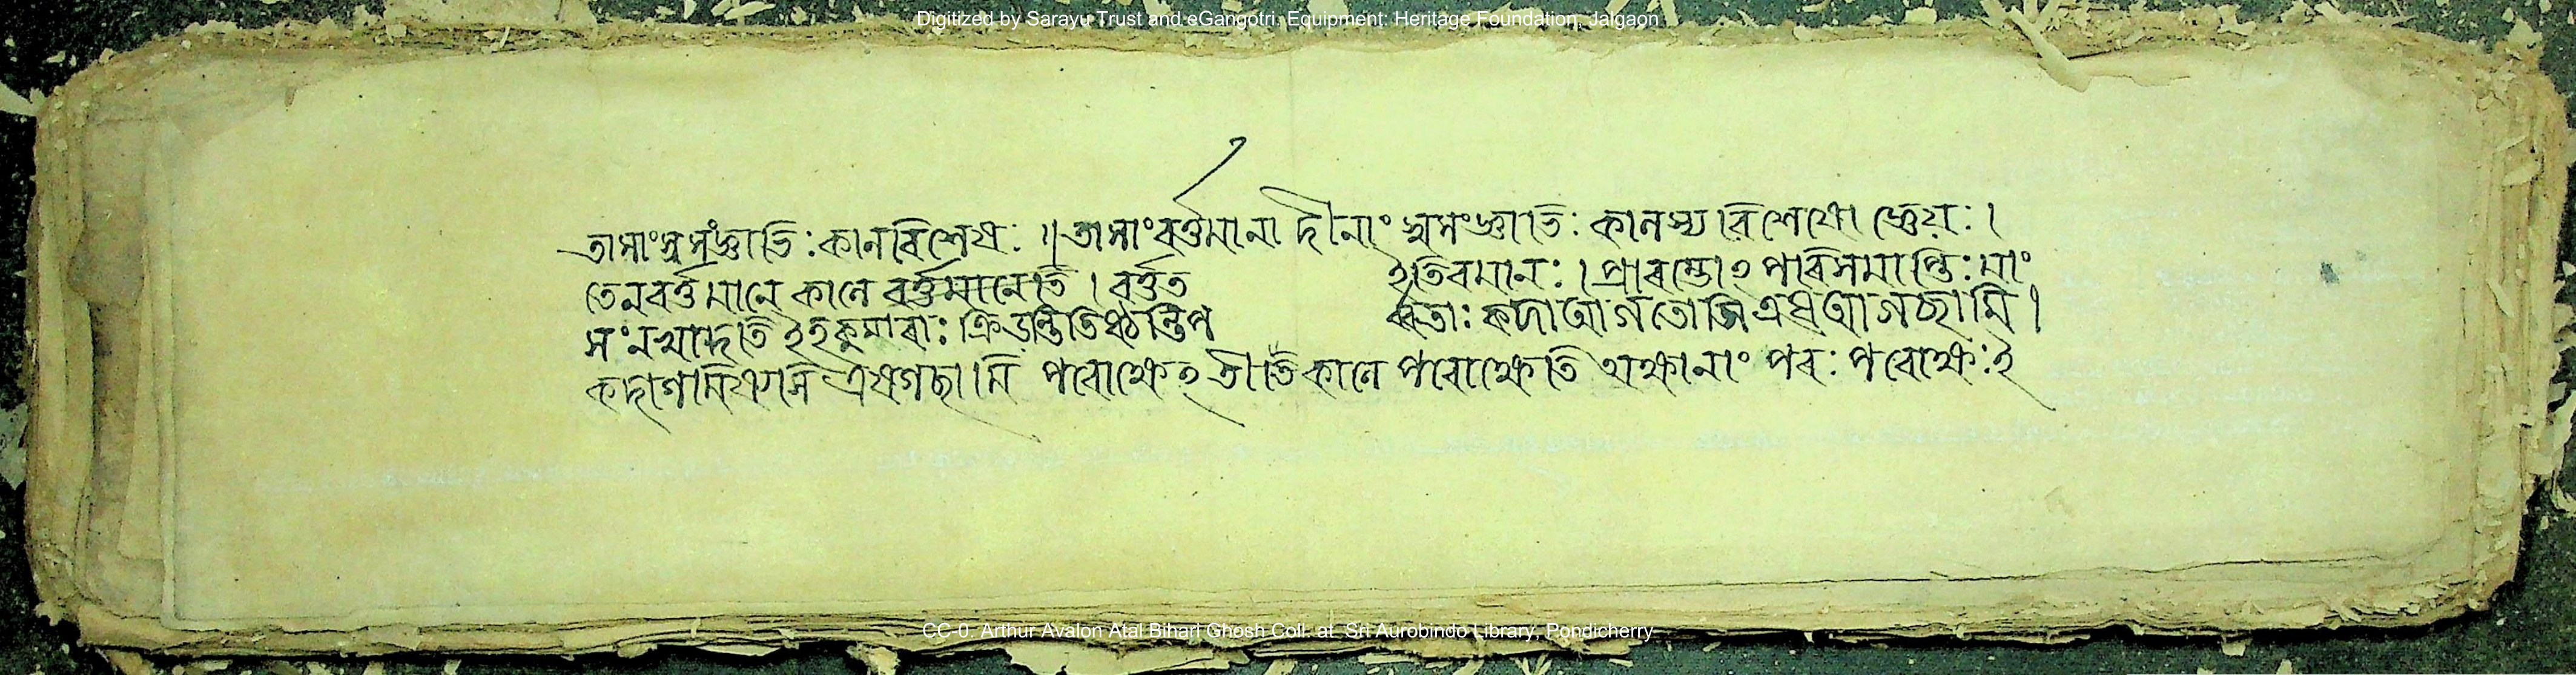 Digitized by Sarayu Trust and eGangotri. Equipment: Heritage Foundation, Jalgaon
তাসাংস্বসংজ্ঞাভি:কালবিশেষ: ॥ তাসাংবর্ত্তমানা দীনাং স্বসংজ্ঞাভি: কালস্য বিশেষো জ্ঞেয়: ।
তেনবর্ত্তমানে কালে বর্ত্তমানেতি । বর্ত্তত ইতিবমান: । প্রারব্ধোঽ পরিসমাপ্তি: মাং
সংনখাদতি ইহকুমারা: ক্রিড়ন্তিতিষ্ঠন্তিপ র্ব্বতা: কদাআগতোসি এষআগছামি ।
কদাগমিষ্যসি এষগছামি পরোক্ষেঽ তীতে কালে পরোক্ষেতি অক্ষানাং পর: পরোক্ষ:ই
CC-0. Arthur Avalon Atal Bihari Ghosh Coll. at Sri Aurobindo Library, Pondicherry